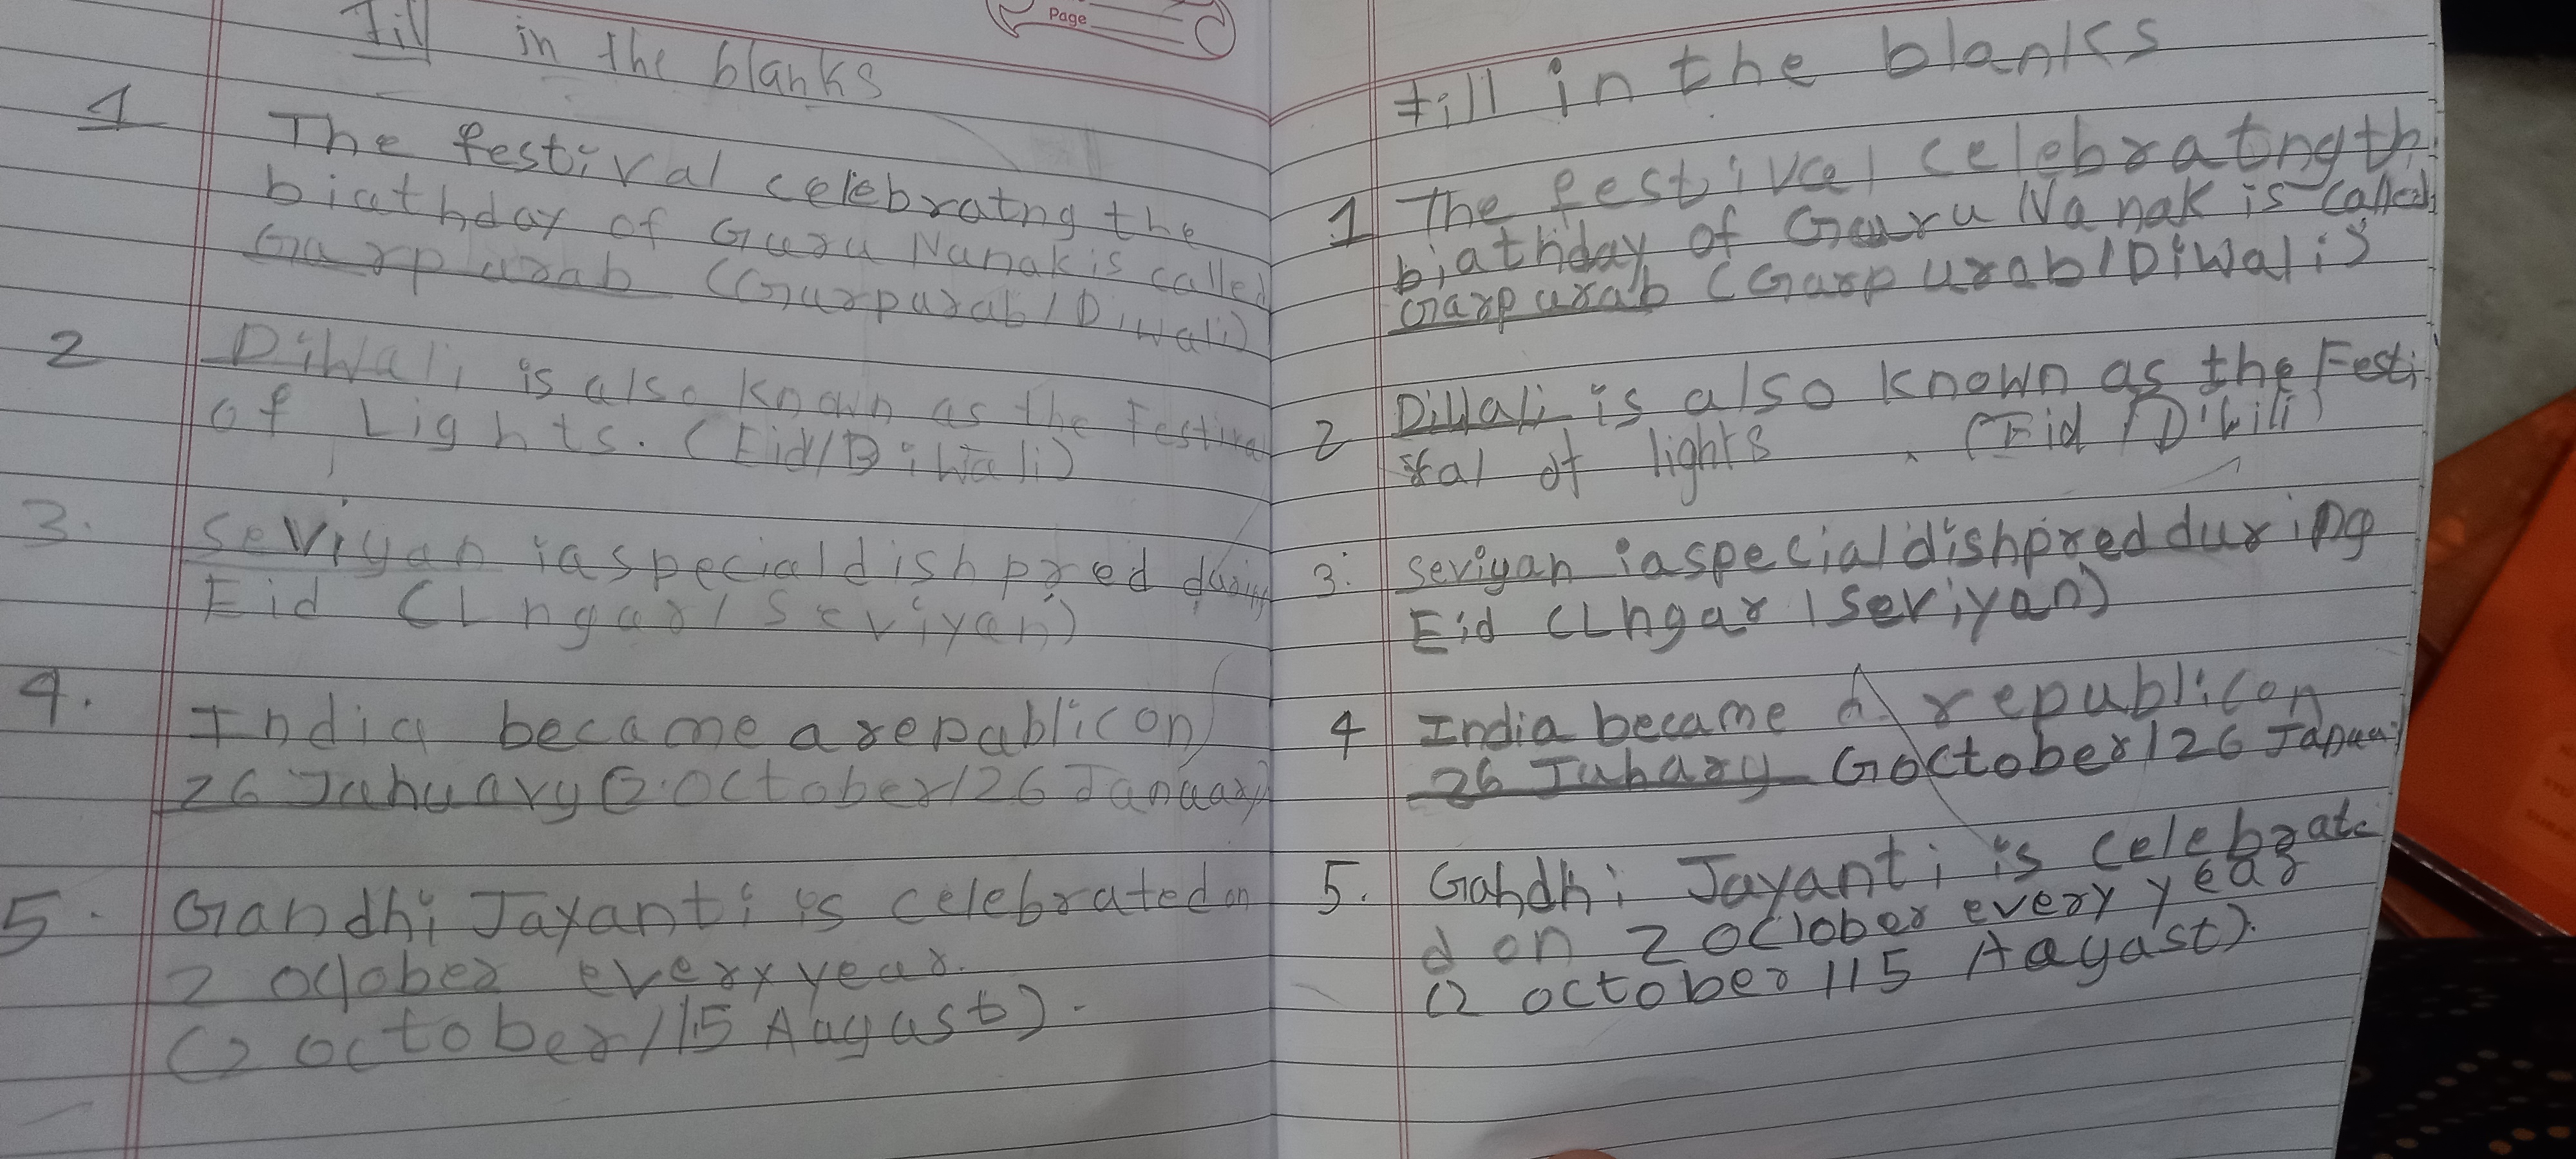 Page
Fill in the blanks
1 The festival celebratng the
biathday of Guru Nanak is called
Gurpurab (Gurpurab/Diwali)
2 Diwali is also known as the Festival
of Lights. (Eid/Diwali)
3. Seviyan iaspecialdish pred during
Eid (Lngar/Seviyan)
4. India became a republic on
26 Januuary (2 October/26 January)
5. Gandhi Jayanti is celebrated on
2 October every year.
(2 October/15 Augast).
Fill in the blanks
1 The festival celebratng th
biathday of Guru Nanak is called
Garpurab (Garpurab/Diwali)
2 Diwali is also known as the Festi
val of lights. (Eid /
3. Seviyan iaspecialdishpredduring
Eid (Lngar/Seviyan)
4 India became a republicon
26 Juhary October/26 Januay
5. Gandhi Jayanti is celebrate
d on 2 October every year
(2 October/15 Aagast).